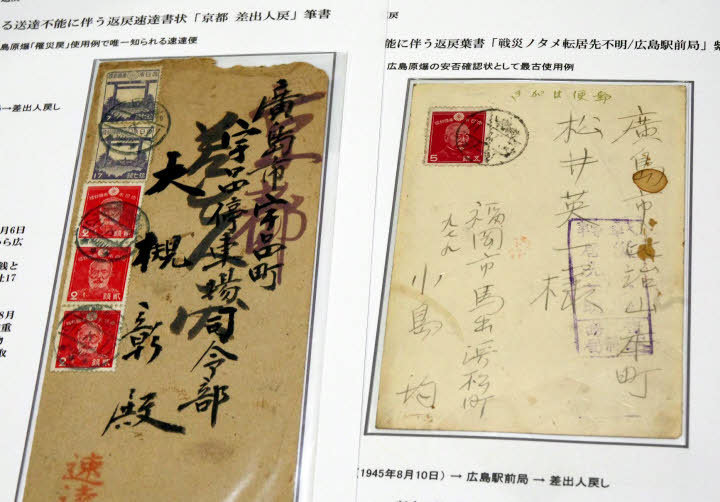 る送達不能に伴う返戻速達書状「京都 差出人戻」筆書
島原爆「罹災戻」使用例で唯一知られる速達便
→差出人戻し
月6日
ら広
銭と
17
8月
重
物
取
廣島市宇品町
宇品停車場司令部
大槻 彰殿
京都
速達
17
17
2
2
2
戻
能に伴う返戻葉書「戦災ノタメ転居先不明/広島駅前局」紫
広島原爆の安否確認状として最古使用例
きがは便郵
5
廣島市
松井英一様
福岡市馬出浜松町
九七九
小島 均
(1945年8月10日) → 広島駅前局 → 差出人戻し